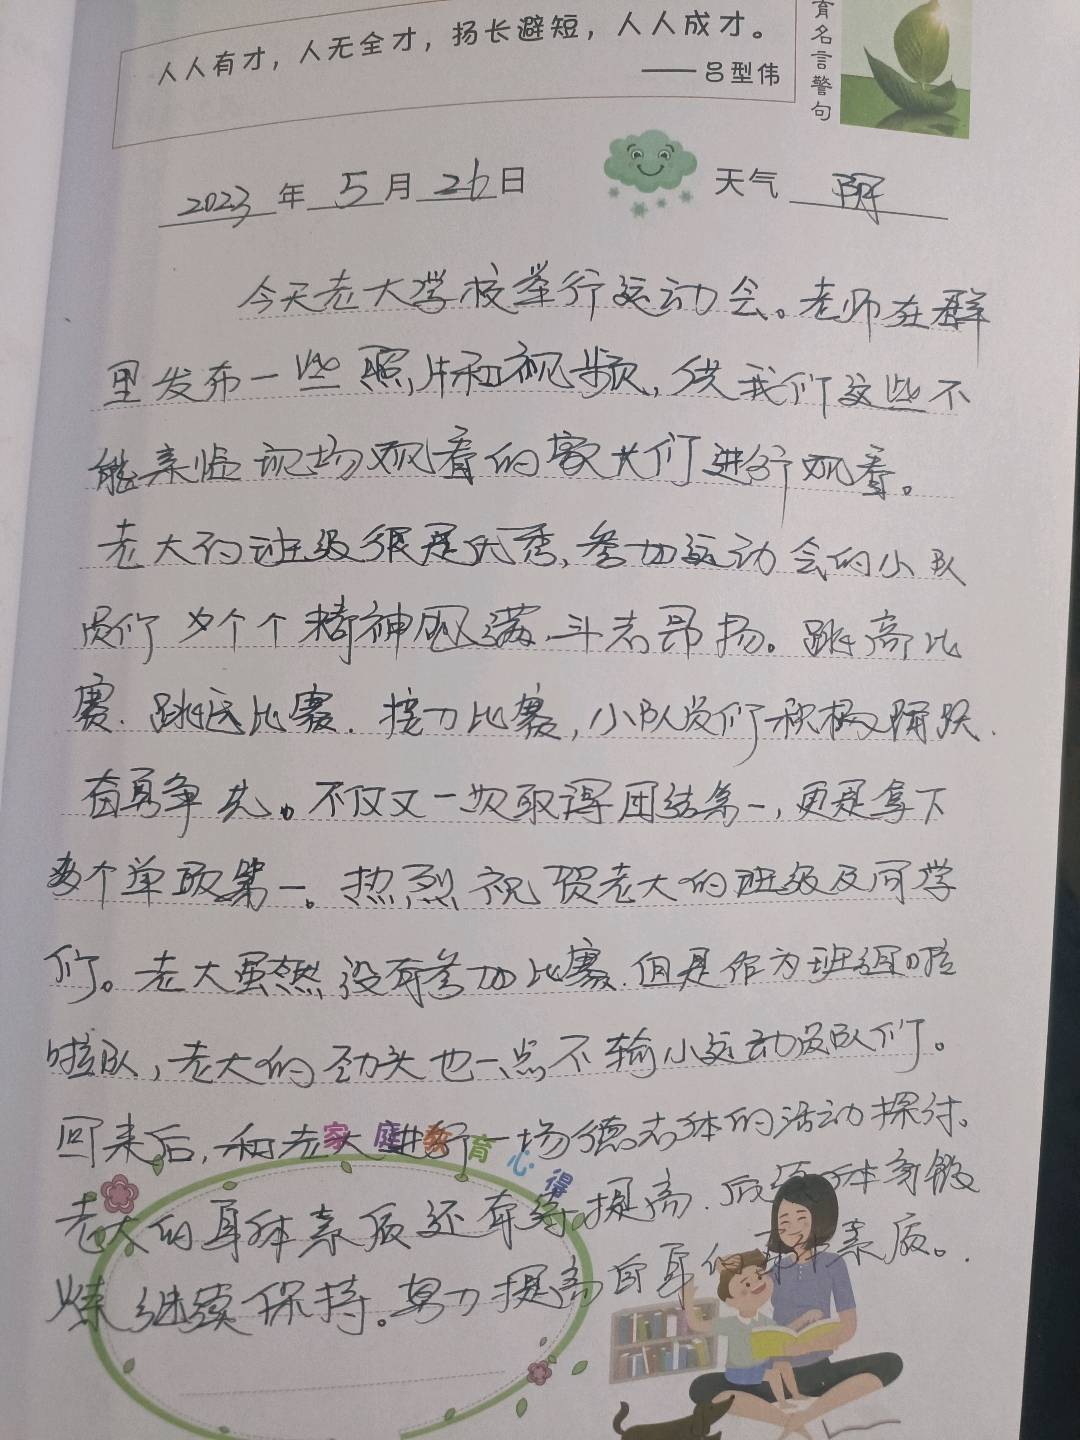 人人有才，人无全才，扬长避短，人人成才。
——吕型伟
育名言警句
2023年5月26日
天气 阴
今天老大学校举行运动会。老师在群
里发布一些照片和视频，供我们这些不
能亲临现场观看的家长们进行观看。
老大的班级很是优秀，参加运动会的小队
员们个个精神饱满、斗志昂扬。跳高比
赛、跳远比赛、接力比赛，小队员们积极踊跃、
奋勇争先。不仅又一次取得团结第一，更是拿下
多个单项第一。热烈祝贺老大的班级及同学
们。老大虽然没有参加比赛，但是作为班级啦
啦队，老大的劲头也一点不输小运动员队们。
回来后，和老大进行一场德志体的活动探讨。
老大的身体素质还有待提高，后续身体锻
炼继续保持。努力提高自身的身体素质。
家庭教育心得